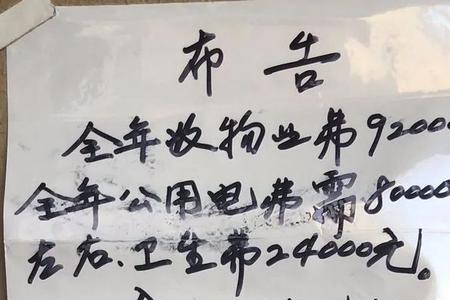 布告
全年收物业费92000
全年公用电费需80000
左右、卫生费24000元。